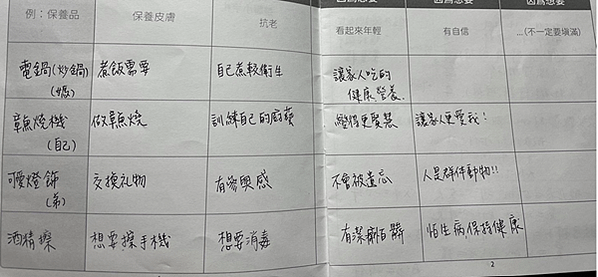 因為想要 因為想要 因為想要
例：保養品 保養皮膚 抗老 看起來年輕 有自信 ...(不一定要填滿)
電鍋(炒鍋) 煮飯需要 自己煮較衛生 讓家人吃的
健康營養.
章魚燒機 做章魚燒 訓練自己的廚藝 變得更賢慧 讓家人更愛我!
(自己)
可愛燈飾 交換礼物 不會被遺忘 人是群体動物!!
酒精擦 想要擦手機 想要消毒 有潔癖怕髒 怕生病保持健康
2